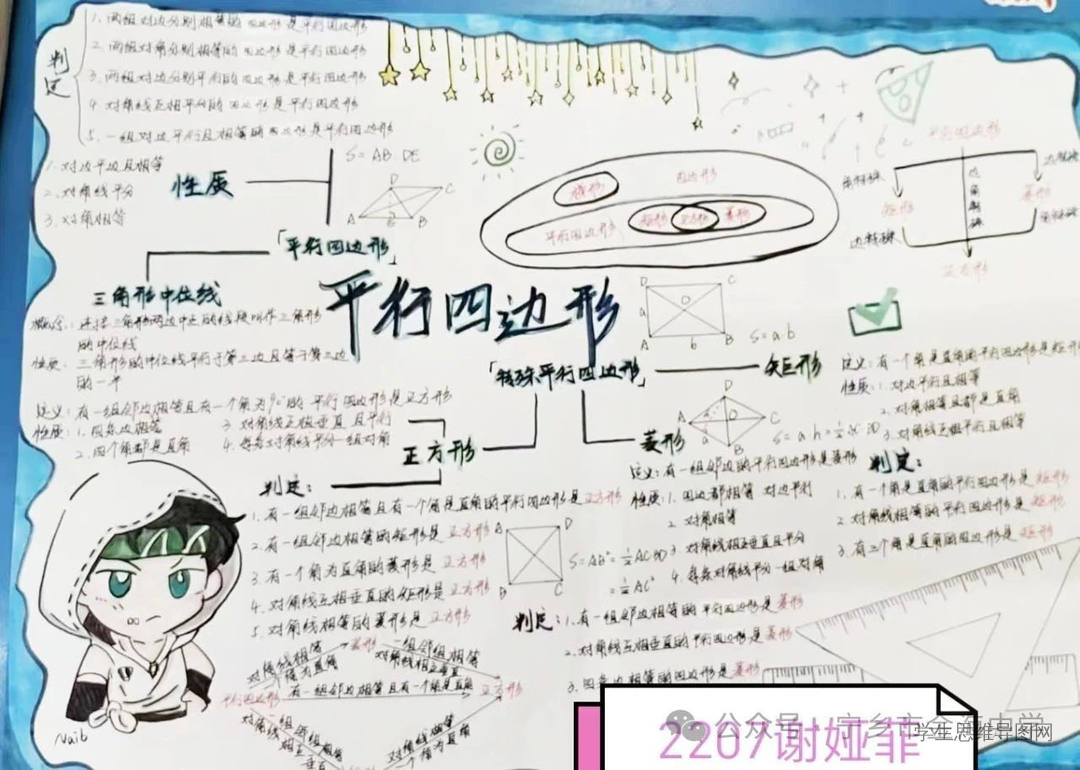 判定
1. 两组对边分别相等的四边形是平行四边形
2. 两组对角分别相等的四边形是平行四边形
3. 两组对边分别平行的四边形是平行四边形
4. 对角线互相平分的四边形是平行四边形
5. 一组对边平行且相等的四边形是平行四边形
1. 对边平边且相等
2. 对角线平分
3. 对角相等
性质
S = AB DE
D
C
A
E
B
「平行四边形」
三角形中位线
概念: 连接三角形两边中点的线段叫作三角形
的中位线
性质: 三角形的中位线平行于第三边且等于第三边
的一半
平行四边形
四边形
梯形
平行四边形
矩形
正方形
菱形
平行四边形
角特殊
边特殊
矩形
菱形
边特殊
角特殊
正方形
D
C
a
O
A
b
B
S = a b
「特殊平行四边形」
矩形
定义: 有一个角是直角的平行四边形是矩形
性质: 1. 对边平行且相等
2. 对角相等且都是直角
3. 对角线互相平且相等
判定:
1. 有一个角是直角的平行四边形是矩形
2. 对角线相等的平行四边形是矩形
3. 有三个角是直角的四边形是矩形
菱形
D
A
O
C
a
B
定义: 有一组邻边的平行四边形是菱形
性质: 1. 四边都相等 对边平行
2. 对角相等
3. 对角线相互垂直且平分
4. 每条对角线平分一组对角
判定: 1. 有一组邻边相等的平行四边形是菱形
2. 对角线互相垂直的平行四边形是菱形
3. 四条边相等的四边形是菱形
定义: 有一组邻边相等且有一个角为90°的平行四边形是正方形
性质: 1. 四条边相等
2. 四个角都是直角
3. 对角线互相垂直且平行
4. 每条对角线平分一组对角
正方形
判定:
1. 有一组邻边相等且有一个角是直角的平行四边形是正方形
2. 有一组邻边相等的矩形是正方形
3. 有一个角为直角的菱形是正方形
4. 对角线互相垂直的矩形是正方形
5. 对角线相等的菱形是正方形
A
D
B
C
S = AB² = ½ AC BD
= ½ AC²
平行四边形
菱形
有一组邻边相等且有一个角是直角
正方形
Naib
公众号
学生思维导图网
2207谢娅菲